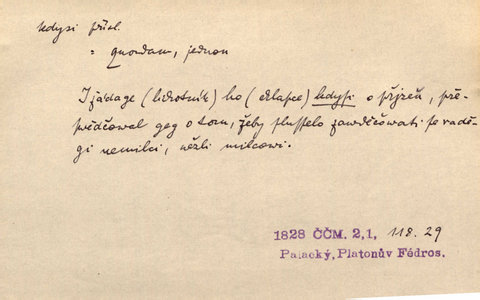 kdysi přísl.
= quondam, jednou
I žádage (lichotník) ho (chlapce) kdysi o přízeň, pře-
swědčowal geg o tom, žeby slusselo zawděčowati se radě-
gi nemilci, nežli milcowi.
1828 ČČM. 2,1, 118.29
Palacký, Platonův Fédros.